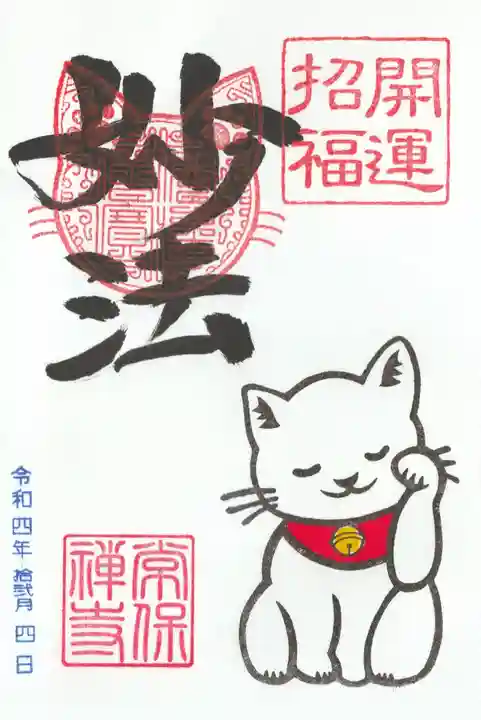 開運
招福
妙法
令和四年 拾弐月 四日
常保
禅寺